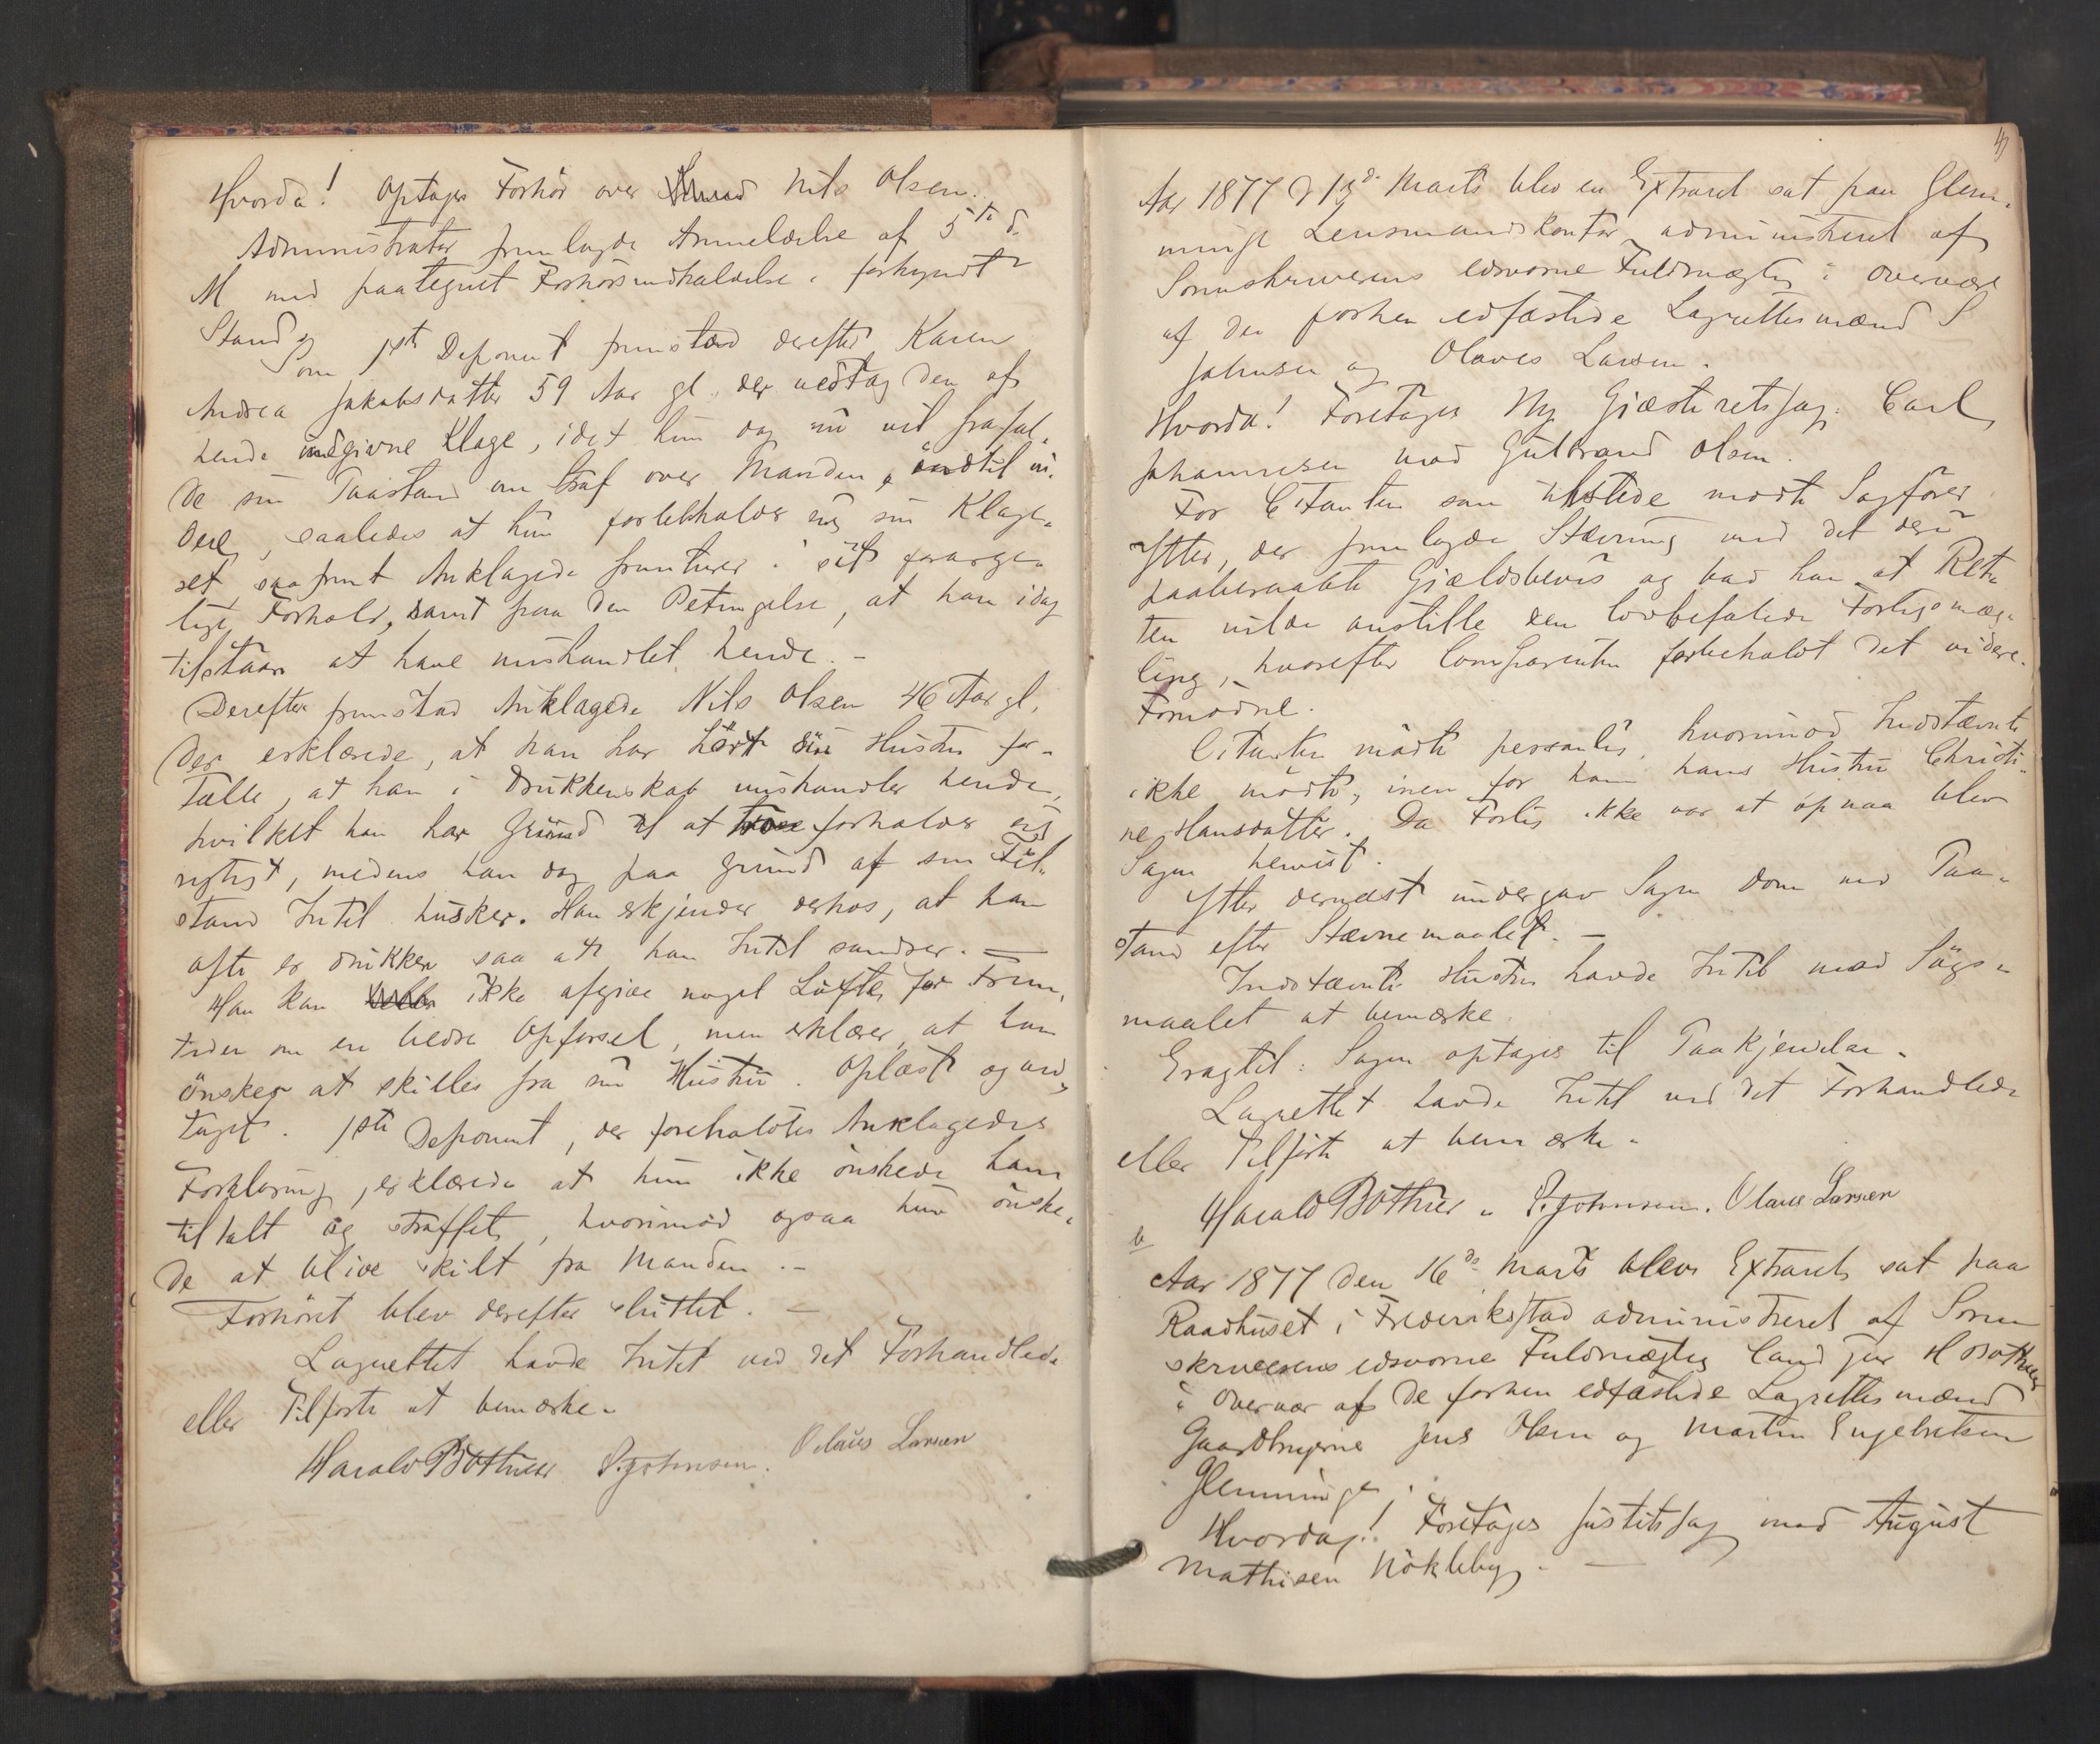 Hvorda! Optages Forhör over Nils Olsen.
Administrator fremlagde Anmeldelse af 5te d.
M med paategnet Forhörsindkaldelse i forkyndt
Stand og
Som 1ste Deponent fremstod derefter Karen
Andrea Jakobsdatter 59 Aar gl. der vedtog den af
hende indgivne Klage, idet hun dog nu vil frafal-
de sin Paastand om Straf over Manden, indtil vi-
dere, saaledes at hun forbeholder sig sin Klage-
ret saafremt Anklagede fremturer i sit forarge-
lige Forhold, samt paa den Betingelse, at han idag
tilstaar at have mishandlet hende. -
Derefter fremstod Anklagede Nils Olsen 46 Aar gl.
Der erklærede, at han har hört sin Hustru for-
tælle, at han i Drukkenskab mishandler hende,
hvilket han har Grund til at troe forholder sig
rigtigt, medens han dog paa Grund af sin Til-
stand Intet husker. Han erkjender derhos, at han
ofte er drukken saa at han Intet sandser. -
Han kan ikke afgive noget Löfte for Frem-
tiden om en bedre Opförsel, men erklærer, at han
önsker at skilles fra sin Hustru. Oplæst og ved-
taget. 1ste Deponent, der foreholdtes Anklagedes
Forklaring, erklærede at hun ikke önskede ham
tiltalt og straffet, hvorimod ogsaa hun önske-
de at blive skilt fra Manden. -
Forhöret blev derefter sluttet. -
Lagrettet havde Intet ved det Forhandlede
eller Tilförte at bemærke.
Harald Bothner S. Johnsen. Olaus Larsen
Aar 1877 d 13d Marts blev en Extraret sat paa Glem-
minge Lensmandskontor administreret af
Sorenskriverens edsvorne Fuldmægtig i Overvær
af de forhen edfæstede Lagrettesmænd S
Johnsen og Olaves Larsen.
Hvorda! Foretages Ny Gjæsteretssag: Carl
Johannesen mod Gulbrand Olsen.
For Citanten som tilstede mödte Sagförer
Ytter, der fremlagde Stævning med det deri
paaberaabte Gjældsbevis og bad han at Ret-
ten vilde anstille den lovbefalede Forligsmæg-
ling, hvorefter Comparenten forbeholdt det videre
Fornödne.
Citanten mödte personlig, hvorimod Indstævnte
ikke mödte, men for ham hans Hustru Christi-
ne Hansdatter. Da Forlig ikke var at opnaa blev
Sagen henvist.
Ytter dernæst undergav Sagen Dom med Paa-
stand efter Stævnemaalet. -
Indstævntes Hustru havde Intet mod Sögs-
maalet at bemærke.
Eragtet: Sagen optages til Paakjendelse.
Lagrettet havde Intet ved det Forhandlede
eller Tilförte at bemærke.
Harald Bothner S. Johnsen. Olaus Larsen
Aar 1877 den 16de Marts blev Extraret sat paa
Raadhuset i Frederikstad administreret af Soren
skriverens edsvorne Fuldmægtig Cand jur H Bothner
i Overvær af de forhen edfæstede Lagrettesmænd
Gaardbrugerne Jens Olsen og Martin Engebretsen
Glemminge.
Hvorda! Foretages Justitssag mod August
Mathisen Nökleby. -